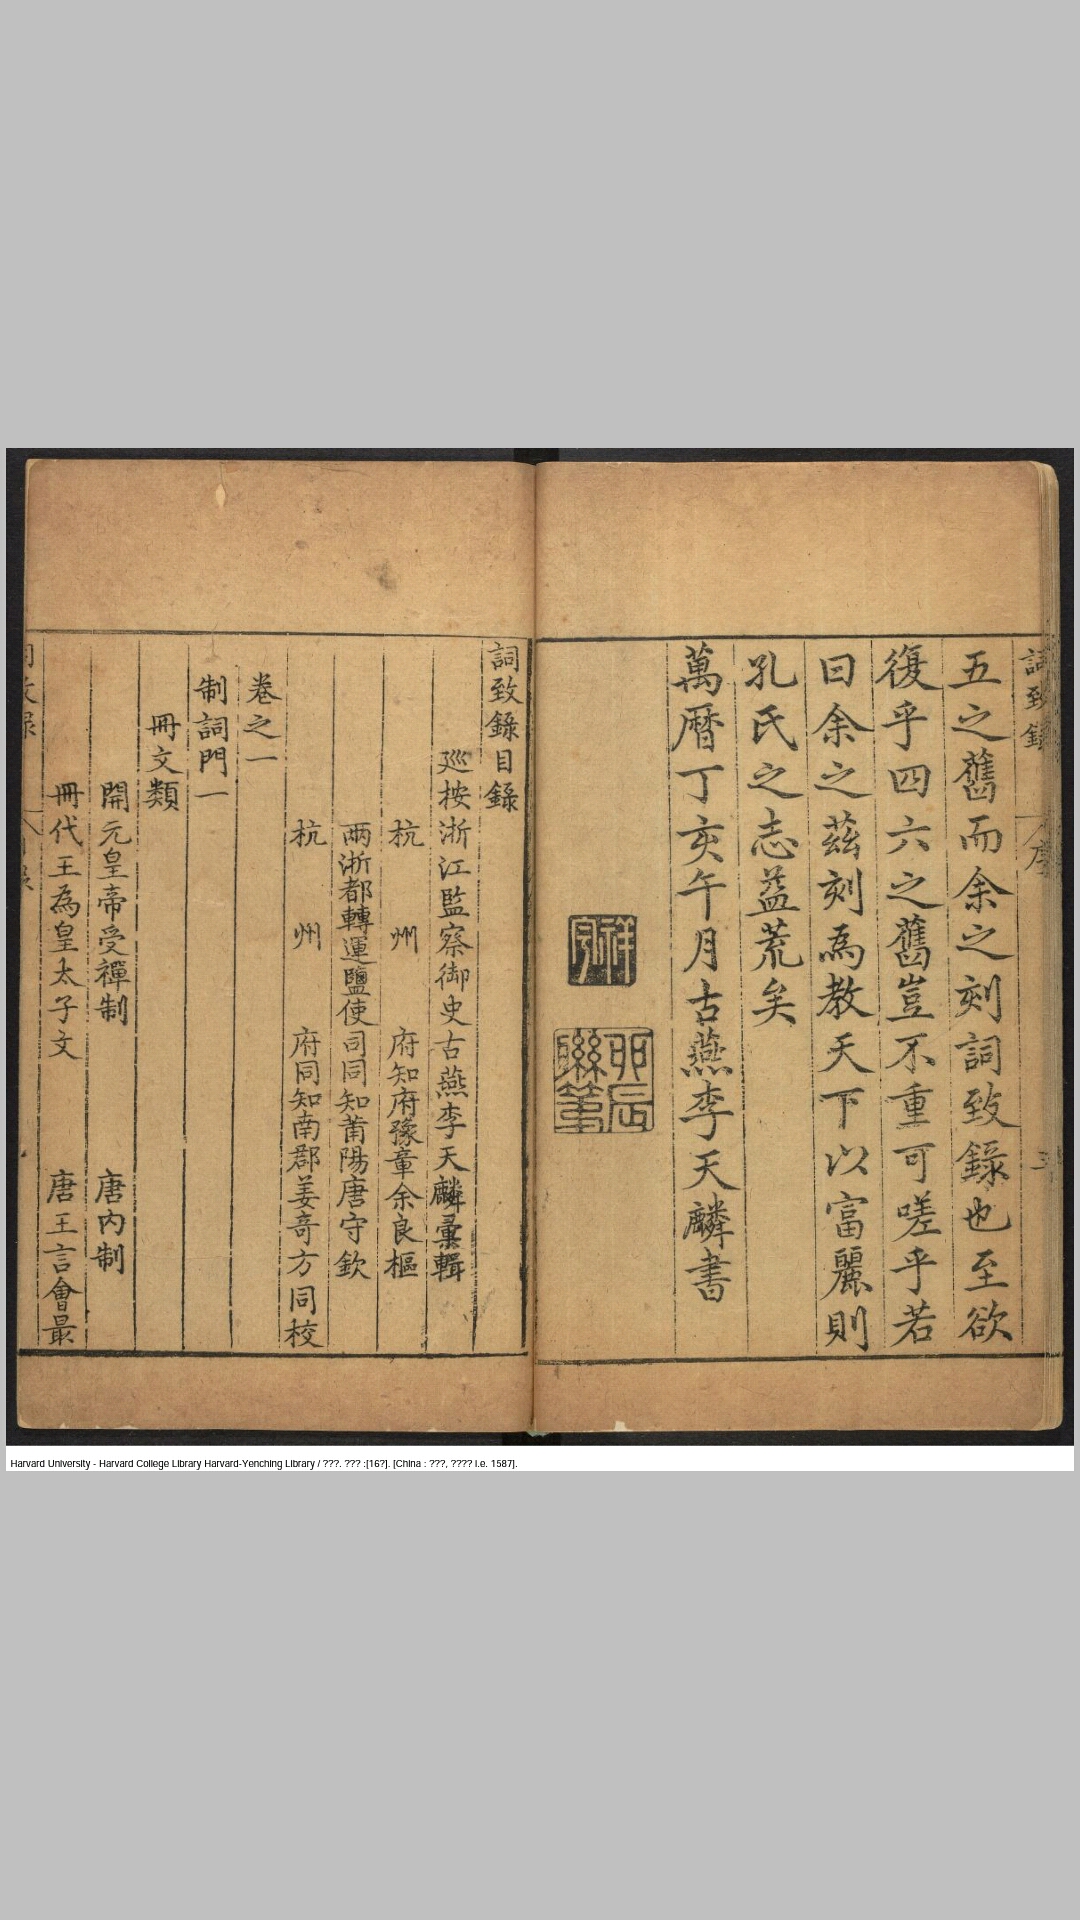 詞致錄
序
三
五之舊而余之刻詞致錄也至欲
復乎四六之舊豈不重可嗟乎若
曰余之茲刻為教天下以富麗則
孔氏之志益荒矣
萬曆丁亥午月古燕李天麟書
詞致錄目錄
巡按浙江監察御史古燕李天麟彙輯
杭州府知府豫章余良樞
兩浙都轉運鹽使司同知莆陽唐守欽
杭州府同知南郡姜奇方同校
卷之一
制詞門一
冊文類
開元皇帝受禪制 唐內制
冊代王為皇太子文 唐王言會最
Harvard University - Harvard College Library Harvard-Yenching Library / ???. ??? :[16?]. [China : ???, ???? i.e. 1587].